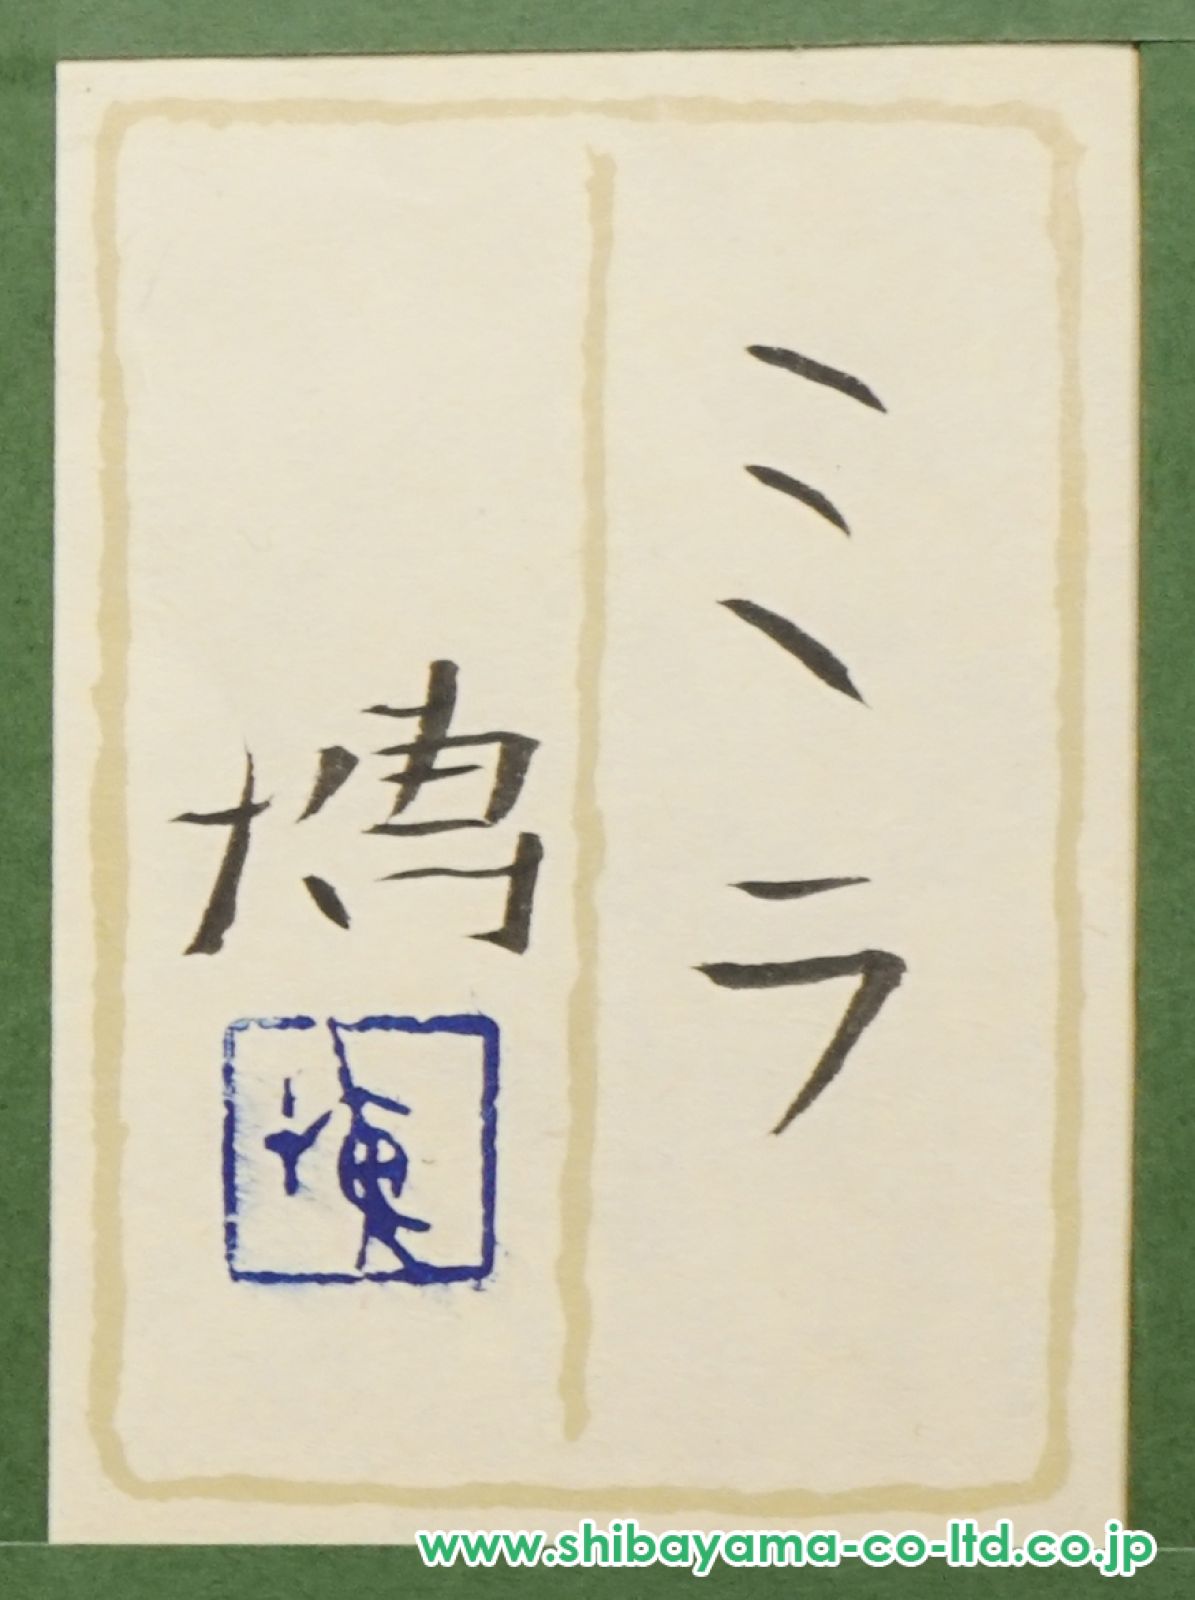 ミラ
博
www.shibayama-co-ltd.co.jp